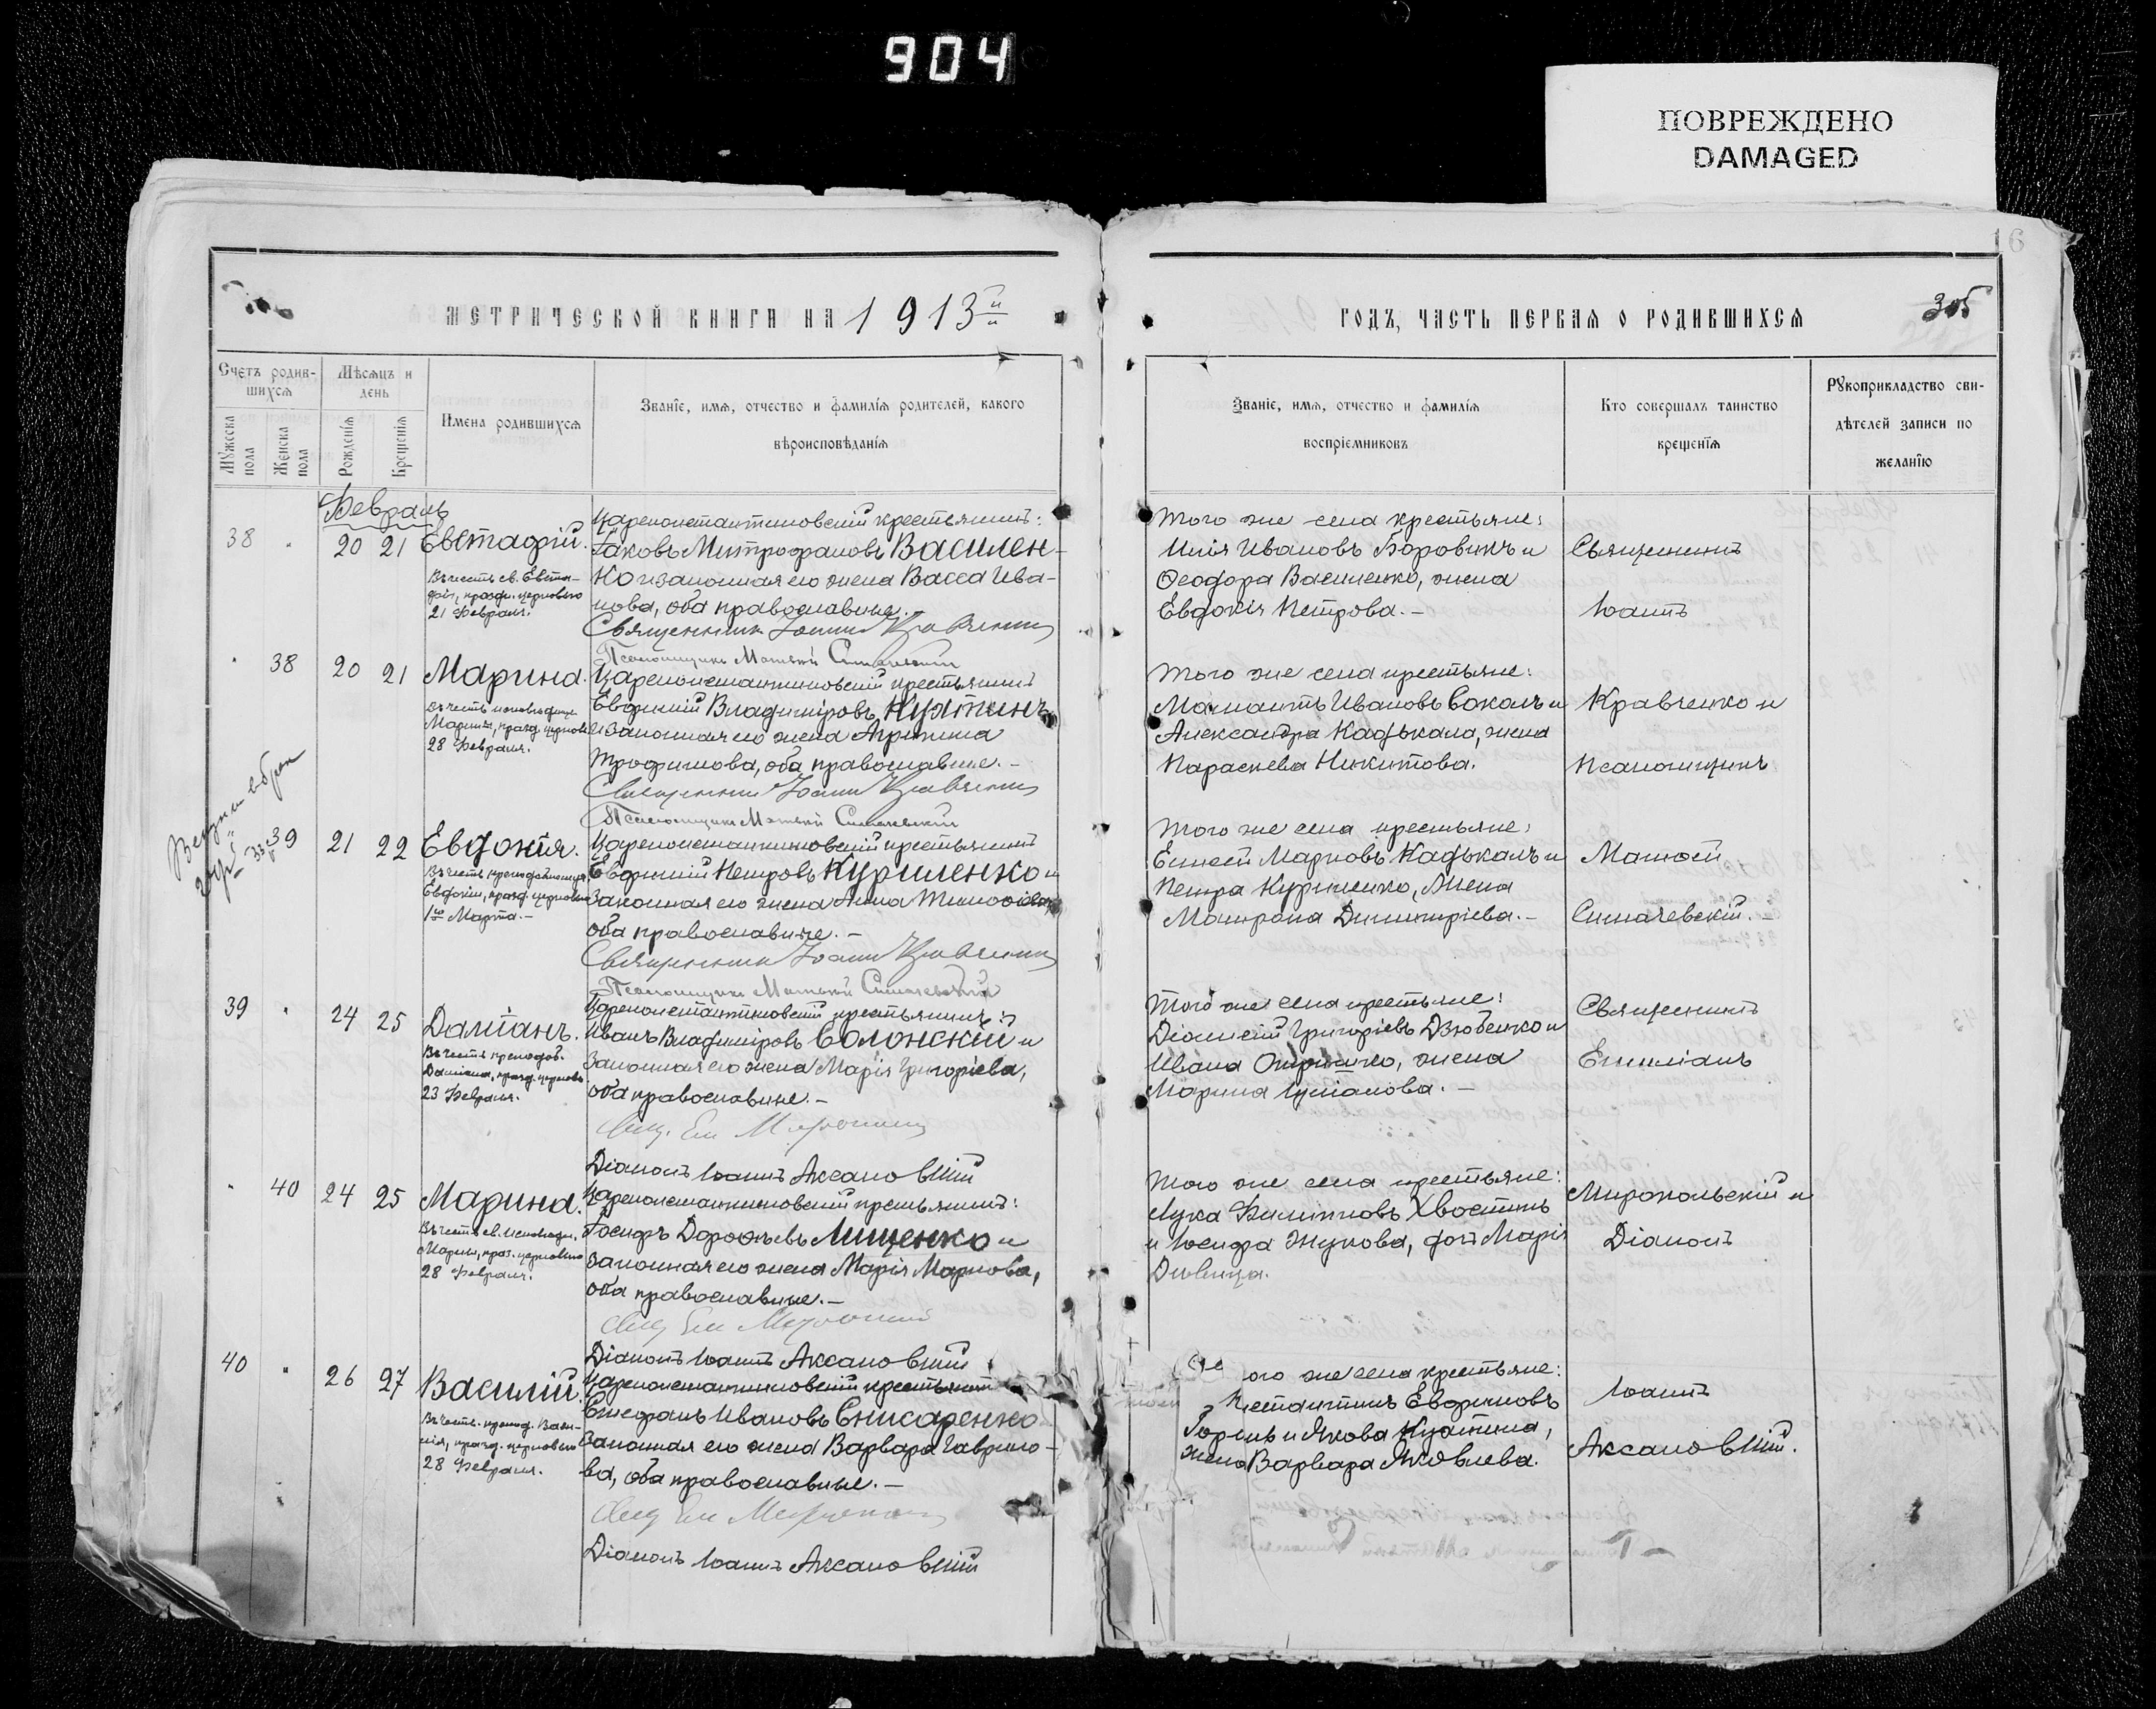 904
ПОВРЕЖДЕНО
DAMAGED
6
МЕТРИЧЕСКОЙ КНИГИ НА 1913й
ГОДЪ, ЧАСТЬ ПЕРВАЯ О РОДИВШИХСЯ
305
Счетъ родив-
шихся
Мѣсяцъ и
день
Мужеска
пола
Женска
пола
Рожденія
Крещенія
Имена родившихся
Званіе, имя, отчество и фамилія родителей, какого
вѣроисповѣданія
Званіе, имя, отчество и фамилія
воспріемниковъ
Кто совершалъ таинство
крещенія
Рукоприкладство сви-
дѣтелей записи по
желанію
Февраль
38 " 20 21 Евстафій.
Въ честь св. Евста-
фія, празд. церковью
21 Февраля.
Цареконстантиновскій крестьянинъ:
Іаковъ Митрофановъ Василен-
ко и законная его жена Васса Ива-
нова, оба православные.
Священникъ Іоаннъ Кравченко
Псаломщикъ Матѳей Симачевскій
Того же села крестьяне:
Илія Ивановъ Боровикъ и
Ѳеодора Василенко, жена
Евдокія Петрова.-
Священникъ
Іоаннъ
" 38 20 21 Марина.
Въ честь исповѣдницы
Марины, празд. церковью
28 Февраля.
Цареконстантиновскій крестьянинъ
Евфимій Владиміровъ Кухтинъ
и законная его жена Агрипина
Трофимова, оба православные.-
Священникъ Іоаннъ Кравченко
Псаломщикъ Матѳей Симачевскій
Того же села крестьяне:
Мамантъ Ивановъ Соколъ и
Александра Кадькала, жена
Параскева Никитова.
Кравченко и
Псаломщикъ
39 21 22 Евдокія.
Въ честь преподобномуч.
Евдокіи, празд. церковью
1го Марта.-
Цареконстантиновскій крестьянинъ
Евфимій Петровъ Куриленко и
законная его жена Анна Тимоѳіева,
оба православные.-
Священникъ Іоаннъ Кравченко
Псаломщикъ Матѳей Симачевскій
Того же села крестьяне:
Елисей Марковъ Кадькалъ и
Петра Куриленко, жена
Матрона Димитріева.-
Матѳей
Симачевскій.
39 " 24 25 Даміанъ.
Въ честь преподоб.
Даміана, празд. церковью
23 Февраля.
Цареконстантиновскій крестьянинъ:
Иванъ Владиміровъ Солонскій и
законная его жена Марія Григоріева,
оба православные.-
Діаконъ Іоаннъ Аксановскій
Того же села крестьяне:
Діонисій Григоріевъ Дзюбенко и
Ивана Опришко, жена
Марина.-
Священникъ
Емиліанъ
" 40 24 25 Марина.
Въ честь св. исповѣдн.
Марины, праз. церковью
28 Февраля.
Цареконстантиновскій крестьянинъ:
Іосифъ Дороѳѣевъ Лищенко и
законная его жена Марія Маркова,
оба православные.-
Діаконъ Іоаннъ Аксановскій
Того же села крестьяне:
Лука Филипповъ Хвостикъ
и Іосифа Жукова, дочь Марія
Дѣвица.
Миропольскій и
Діаконъ
40 " 26 27 Василій.
Въ честь препод. Васи-
лія, празд. церковью
28 Февраля.
Цареконстантиновскій крестьянинъ
Стефанъ Ивановъ Снисаренко
законная его жена Варвара Гаврило-
ва, оба православные.-
Діаконъ Іоаннъ Аксановскій
ого же села крестьяне:
Евфимовъ
и Якова Кухтина,
жена Варвара Яковлева.
Іоаннъ
Аксановскій.